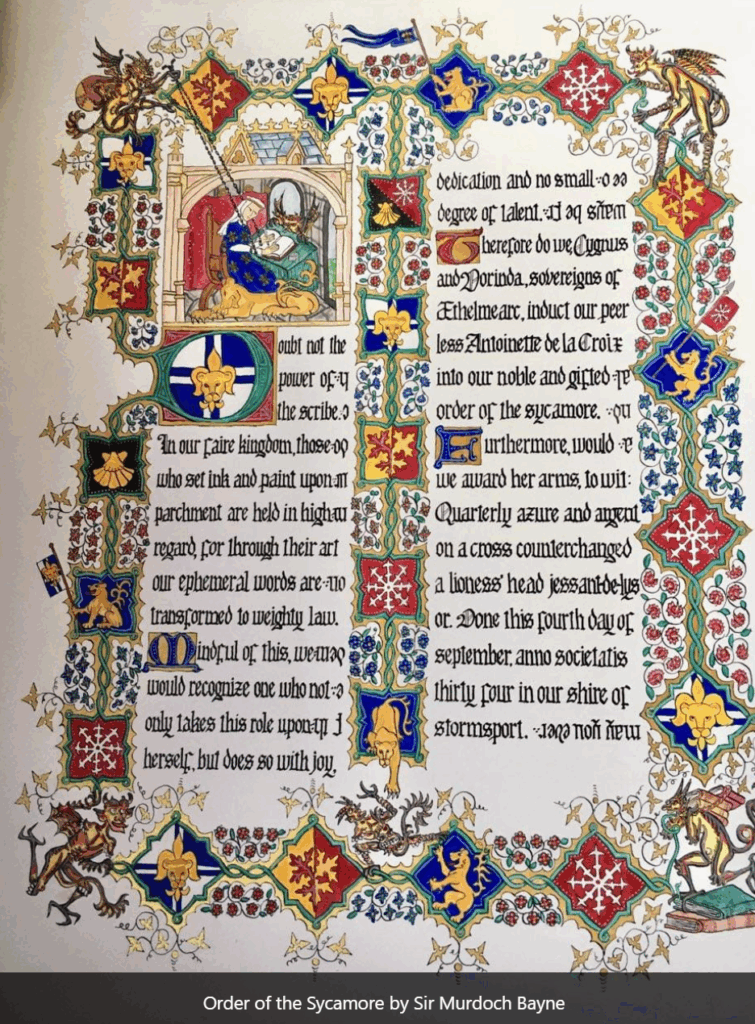 Doubt not the
power of
the scribe.
In our faire kingdom, those
who set ink and paint upon
parchment are held in high
regard, for through their art
our ephemeral words are
transformed to weighty law.
Mindful of this, we
would recognize one who not
only takes this role upon
herself, but does so with joy,
dedication and no small
degree of talent.
Therefore do we, Cygnus
and Dorinda, sovereigns of
Æthelmearc, induct our peer
less Antoinette de la Croix
into our noble and gifted
order of the sycamore.
Furthermore, would
we award her arms, to wit:
Quarterly azure and argent
on a cross counterchanged
a lioness' head jessant-de-lys
or. Done this fourth day of
september, anno societatis
thirty four in our shire of
stormsport.
Order of the Sycamore by Sir Murdoch Bayne